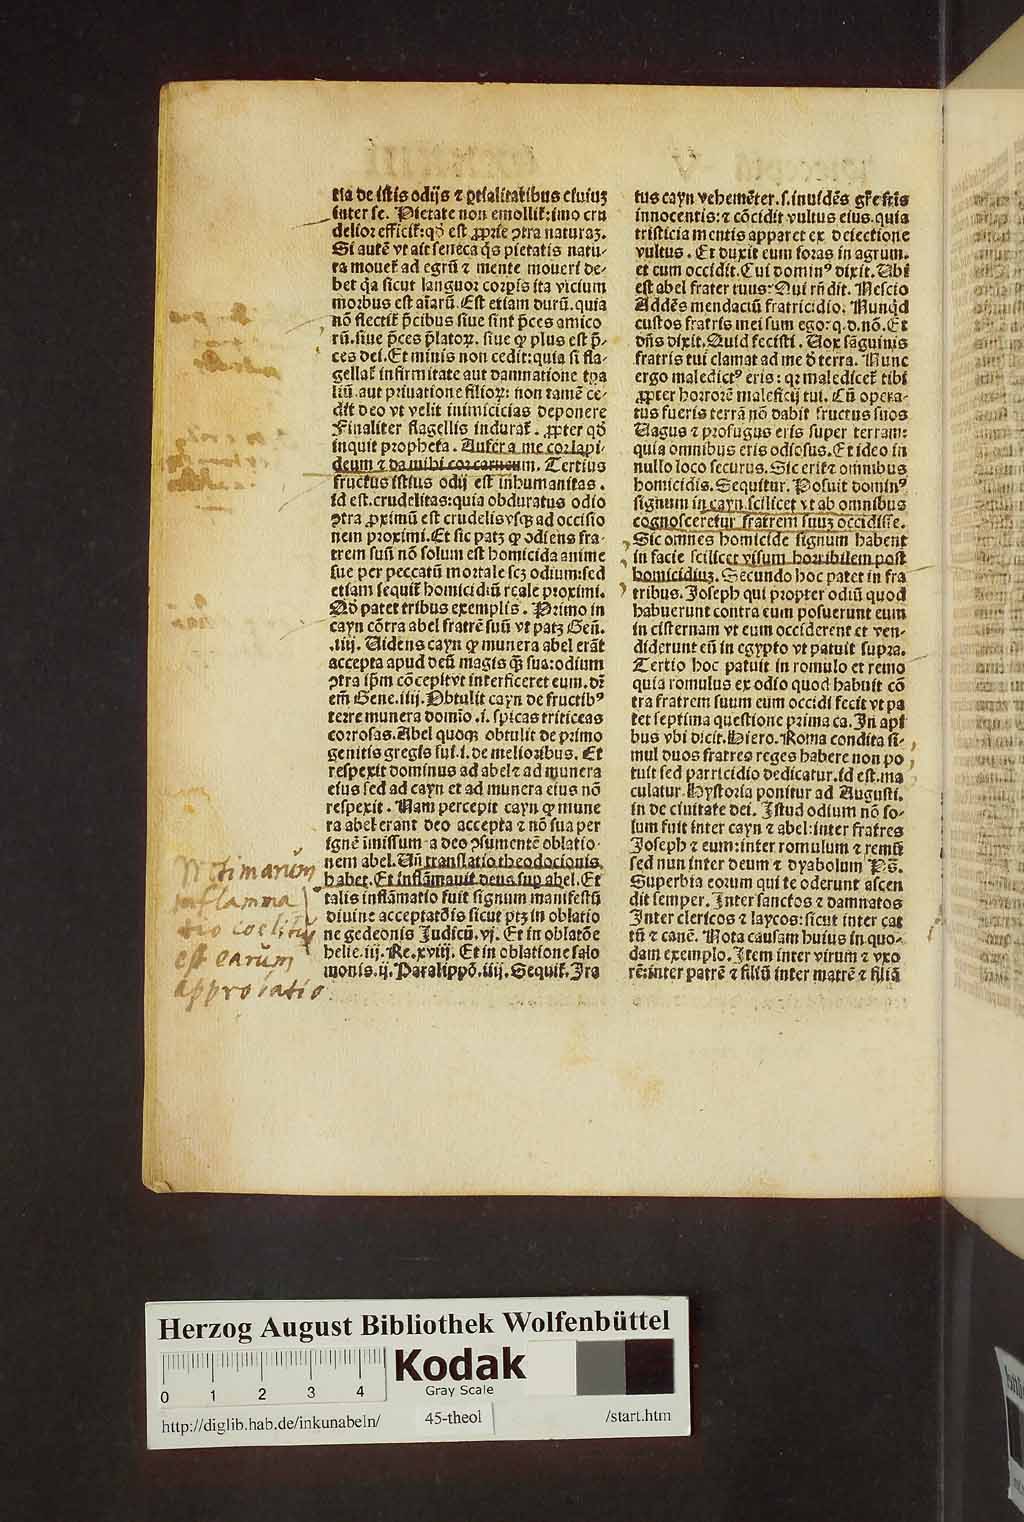 tia de istis odijs ⁊ ꝑtialitatibus ciuiuꝫ
inter se. Pietate non emollit̃: imo cru
delior efficit̃: qð est ꝓprie ꝯtra naturaꝫ.
Si autē vt ait seneca q̃s pietatis natu-
ra mouet̃ ad egrū ⁊ mente moueri de-
bet q̃a sicut languor corꝑis ita vicium
morbus est aīarū. Est etiam durū. quia
nō flectit̃ p̄cibus siue sint p̄ces amico
rū. siue p̄ces p̄latoꝝ. siue ꝙ plus est p̄-
ces dei. Et minis non cedit: quia si fla-
gellat̃ infirmitate aut damnatione
liū. aut priuatione filioꝝ: non tamē ce-
dit deo vt velit inimicicias deponere
Finaliter flagellis indurat̃. ꝓpter qð
inquit propheta. Aufer a me cor lapi
deum ⁊ da mihi cor carneum. Tertius
fructus istius odij est inhumanitas.
id est. crudelitas: quia obduratus odio
ꝯtra ꝓximū est crudelis vsqꝫ ad occisio
nem proximi. Et sic patꝫ ꝙ odiens fra-
trem suū nō solum est homicida anime
sue per peccatū mortale scꝫ odium: sed
etiam sequit̃ homicidiū reale proximi.
Qð patet tribus exemplis. Primo in
cayn cōtra abel fratrē suū vt patꝫ Geñ.
.iiij. Uidens cayn ꝙ munera abel erāt
accepta apud deū magis q̃ꝫ sua: odium
ꝯtra ip̄m cōcepit vt interficeret eum. dr̄
em̄ Gene. iiij. Obtulit cayn de fructibꝰ
terre munera domīo. i. spicas triticeas
corrosas. Abel quoqꝫ obtulit de primo
genitis gregis sui. i. de melioribus. Et
respexit dominus ad abel ⁊ ad munera
eius sed ad cayn et ad munera eius nō
respexit. Nam percepit cayn ꝙ mune
ra abel erant deo accepta ⁊ nō sua per
ignē īmissum a deo ꝯsumentē oblatio
nem abel. Uñ translatio theodocionis
habet. Et inflāmauit deus suꝑ abel. Et
talis inflāmatio fuit signum manifestū
diuine acceptatōis sicut ptꝫ in oblatio
ne gedeonis Judicū. vj. Et in oblatōe
helie. iij. Re. xviij. Et in oblatione salo
monis. ij. Paralippō. iiij. Sequit̃. Ira
tus cayn vehemēter. s. inuidēs gr̄e fr̄is
innocentis: ⁊ cōcidit vultus eius. quia
tristicia mentis apparet ex deiectione
vultus. Et duxit eum foras in agrum.
et eum occidit. Cui dominꝰ dixit. Ubi
est abel frater tuus: Qui rn̄dit. Nescio
Addēs mendaciū fratricidio. Nunq̇d
custos fratris mei sum ego: q. d. nō. Et
dn̄s dixit. Quid fecisti. Uox sāguinis
fratris tui clamat ad me ð terra. Nunc
ergo maledictꝰ eris: qꝛ maledicet̃ tibi
ꝓpter horrorē maleficij tui. Cū opera-
tus fueris terrā nō dabit fructus suos
Uagus ⁊ profugus eris super terram:
quia omnibus eris odiosus. Et ideo in
nullo loco securus. Sic erit ⁊ omnibus
homicidis. Sequitur. Posuit dominꝰ
signum in cayn. scilicet vt ab omnibus
cognosceretur fratrem suuꝫ occidisse.
Sic omnes homicide signum habent
in facie scilicet visum horribilem post
homicidiuꝫ. Secundo hoc patet in fra
tribus. Joseph qui propter odiū quod
habuerunt contra eum posuerunt eum
in cisternam vt eum occiderent et ven-
diderunt eū in egypto vt patuit supra.
Tertio hoc patuit in romulo et remo
quia romulus ex odio quod habuit cō
tra fratrem suum eum occidi fecit vt pa
tet septima questione prima ca. In api
bus vbi dicit. Hiero. Roma condita si-
mul duos fratres reges habere non po
tuit sed parricidio dedicatur. id est. ma
culatur. Hystoria ponitur ad Augusti.
in de ciuitate dei. Istud odium nō so-
lum fuit inter cayn ⁊ abel: inter fratres
Joseph ⁊ eum: inter romulum ⁊ remū
sed nun inter deum ⁊ dyabolum Ps̄.
Superbia eorum qui te oderunt ascen
dit semper. Inter sanctos ⁊ damnatos
Inter clericos ⁊ laycos: sicut inter cat
tū ⁊ canē. Nota causam huius in quo-
dam exemplo. Item inter virum ⁊ vxo
rē: inter patrē ⁊ filiū inter matrē ⁊ filiā
Victimarum
inflamma
tio coelitus
est earum
approbatio
Herzog August Bibliothek Wolfenbüttel
Kodak
Gray Scale
0 1 2 3 4
http://diglib.hab.de/inkunabeln/ 45-theol /start.htm